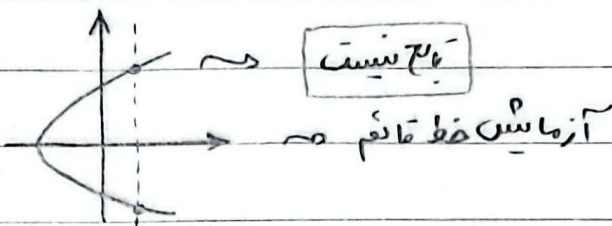 تابع نیست
آزمایش خط قائم